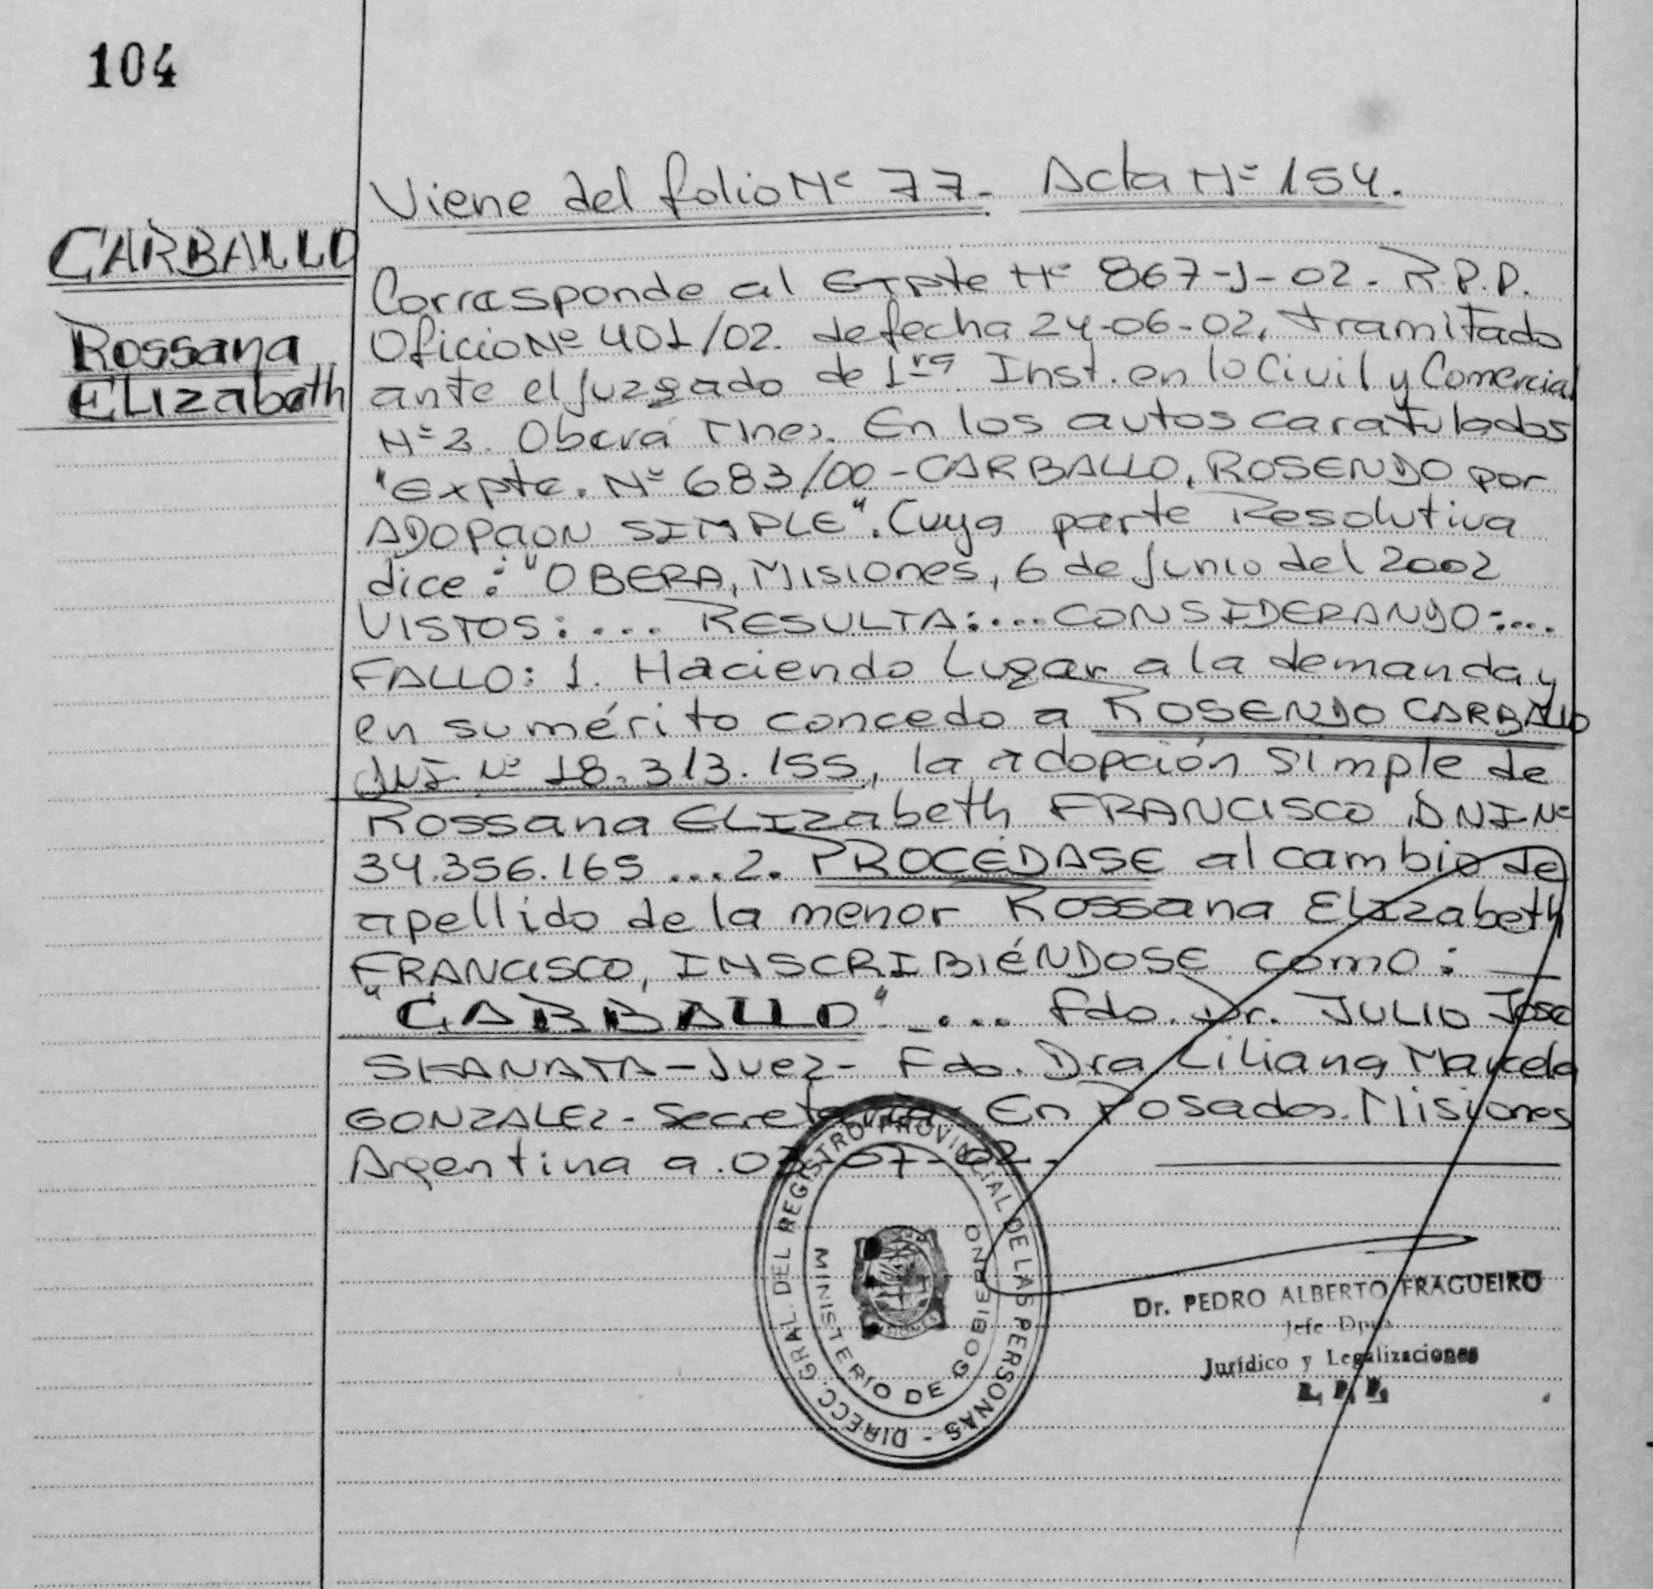 104
Viene del folio Nº 77- Acta Nº 154.
CARBALLO
Rossana
Elizabeth
Corresponde al Expte Nº 867-J-02- R.P.P.
Oficio Nº 401/02. de fecha 24-06-02, tramitado
ante el Juzgado de 1ra Inst. en lo Civil y Comercial
Nº 2. Oberá Mnes. En los autos caratulados
"Expte. Nº 683/00 - CARBALLO, ROSENDO por
ADOPCION SIMPLE". Cuya parte Resolutiva
dice: "OBERA, Misiones, 6 de Junio del 2002
VISTOS:.... RESULTA:... CONSIDERANDO:....
FALLO: 1. Haciendo Lugar a la demanda y
en su mérito concedo a ROSENDO CARBALLO
DNI Nº 18.313.155, la adopción simple de
Rossana Elizabeth FRANCISCO DNI Nº
34.356.165 ...2. PROCEDASE al cambio de
apellido de la menor Rossana Elizabeth
FRANCISCO, INSCRIBIÉNDOSE como: —
"CARBALLO" -... Fdo. Dr. JULIO José
SKANATA - Juez - Fdo. Dra Liliana Marcela
GONZALEZ - Secretaria - En Posadas. Misiones
Argentina a 03-07-02-
DIRECC. GRAL. DEL REGISTRO PROVINCIAL DE LAS PERSONAS -
MINISTERIO DE GOBIERNO
Dr. PEDRO ALBERTO FRAGUEIRO
Jefe Dpto
Jurídico y Legalizaciones
R. P. P.